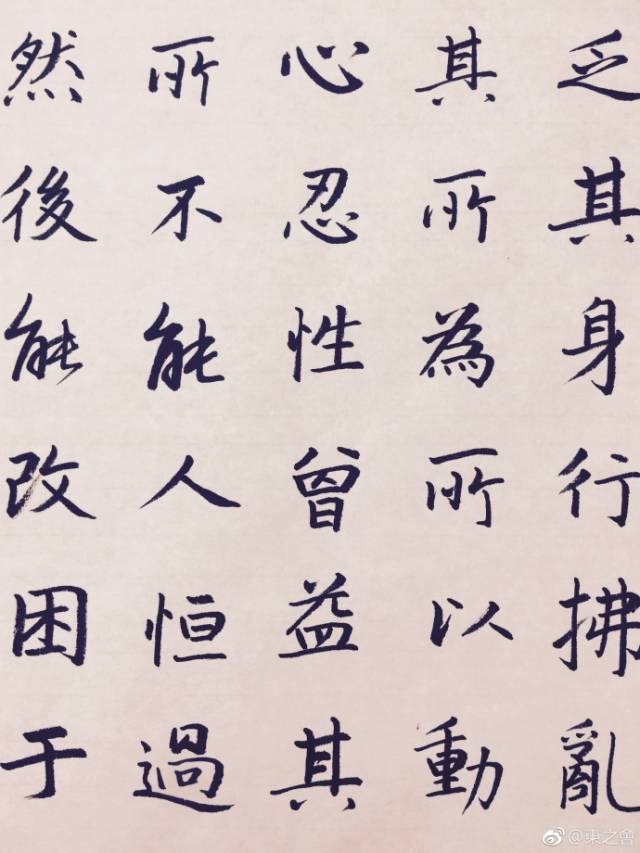 乏其身行拂亂
其所為所以動
心忍性曾益其
所不能人恒過
然後能改困于
@東之舍